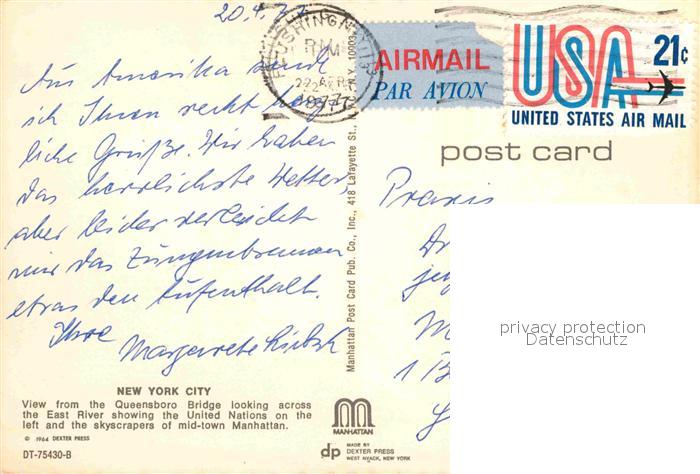 20.4.77
Aus Amerika sende
ich Ihnen recht herz-
liche Grüße. Wir haben
das herrlichste Wetter,
aber leider verleidet
mir das Zungenbrennen
etwas den Aufenthalt.
Ihre
Margarete
NEW YORK CITY
View from the Queensboro Bridge looking across
the East River showing the United Nations on the
left and the skyscrapers of mid-town Manhattan.
© 1964 DEXTER PRESS
DT-75430-B
Manhattan Post Card Pub. Co., Inc., 418 Lafayette St., N.Y. 10003
MANHATTAN
dp MADE BY
DEXTER PRESS
WEST NYACK, NEW YORK
FLUSHING N.Y. 113
PM
22 APR
1977
AIRMAIL
PAR AVION
USA 21¢
UNITED STATES AIR MAIL
post card
Praxis
Dr
M
1 B
privacy protection
Datenschutz